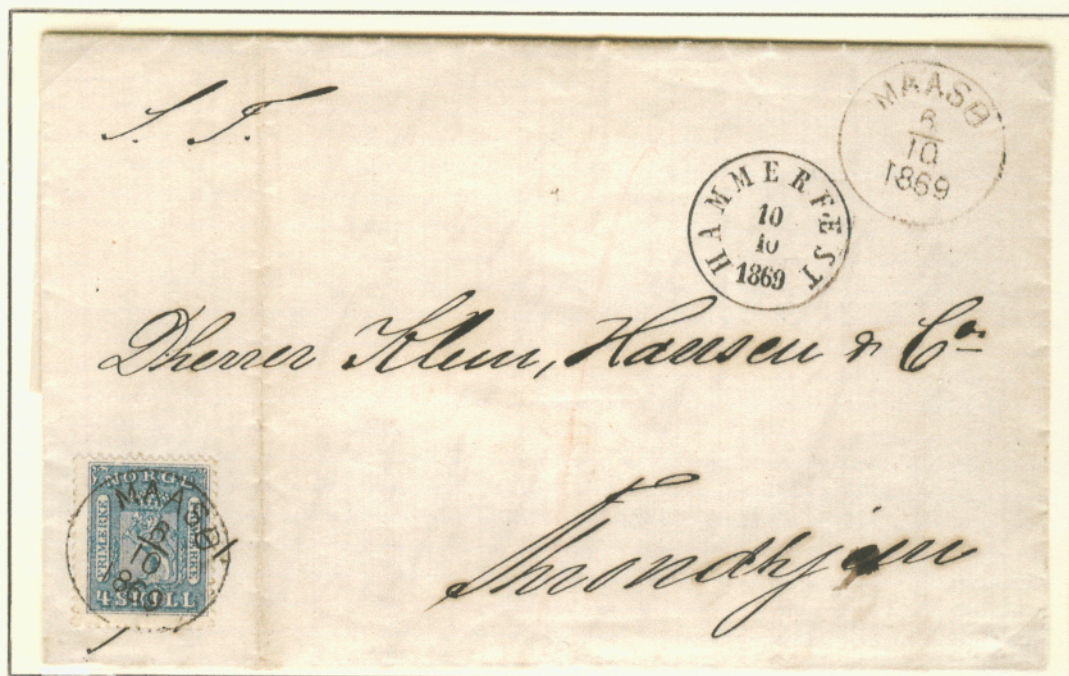 S. T.
MAASØ
6
10
1869
HAMMERFÆST
10
10
1869
Dherrer Klem, Hansen & Co
Throndhjem
NORGE
FRIMERKE
FRIMERKE
4 SKILL
MAASØ
6
10
1869